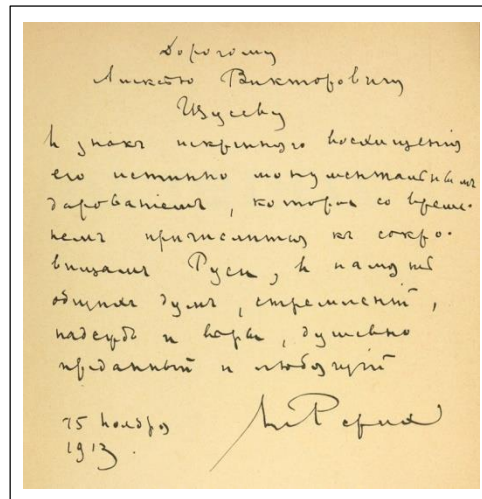 Дорогому
Алексѣю Викторовичу
Щусеву
въ знакъ искренняго восхищенія
его истинно монументальнымъ
дарованіемъ, которое со време-
немъ причислится къ сокро-
вищамъ Руси, въ память
общихъ думъ, стремленій,
надеждъ и вѣры, душевно
преданный и любящій
Н Рерих
15 ноября
1913.